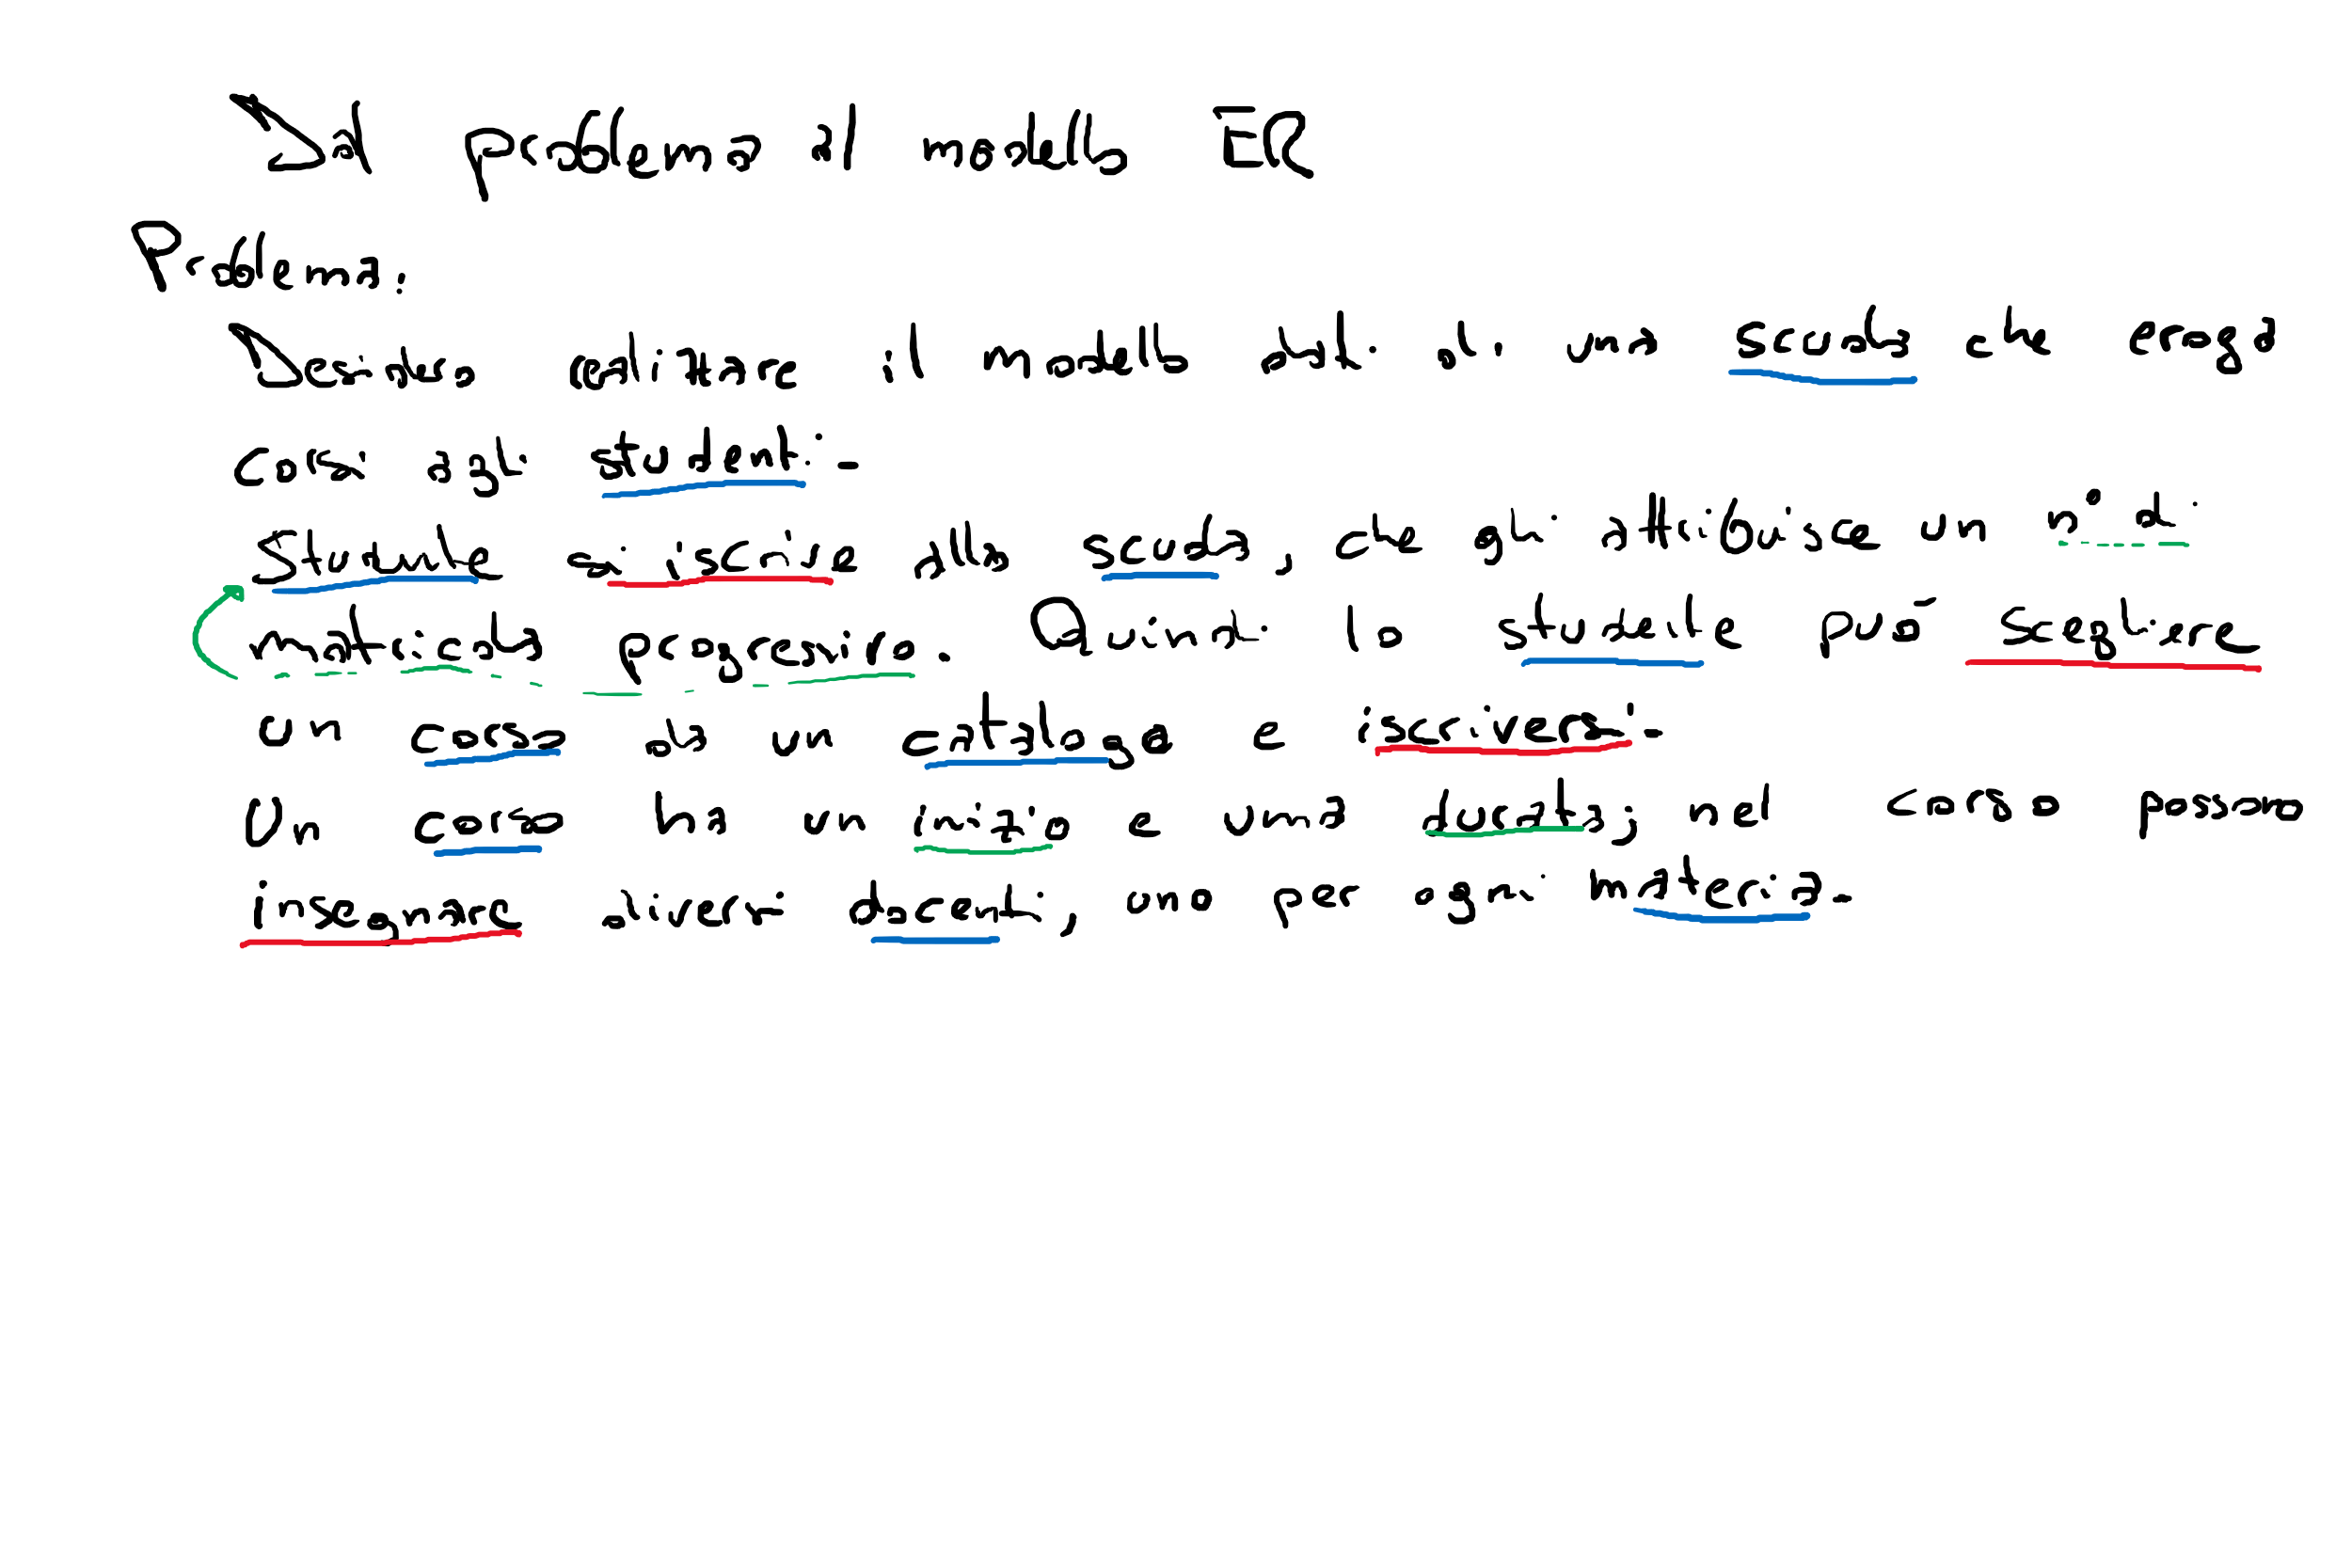 Dal problema al modello ER
Problema:
Desidero definire il modello dati di una scuola che eroga
corsi agli studenti.
Studente si iscrive alla scuola, che gli attribuisce un n° di
matricola progressivo. Quindi lo studente può scegliere
un corso da un catalogo e iscriversi.
Un corso ha un inizio e una durata; nel corso possono
insegnare diversi docenti, uno per ogni materia.